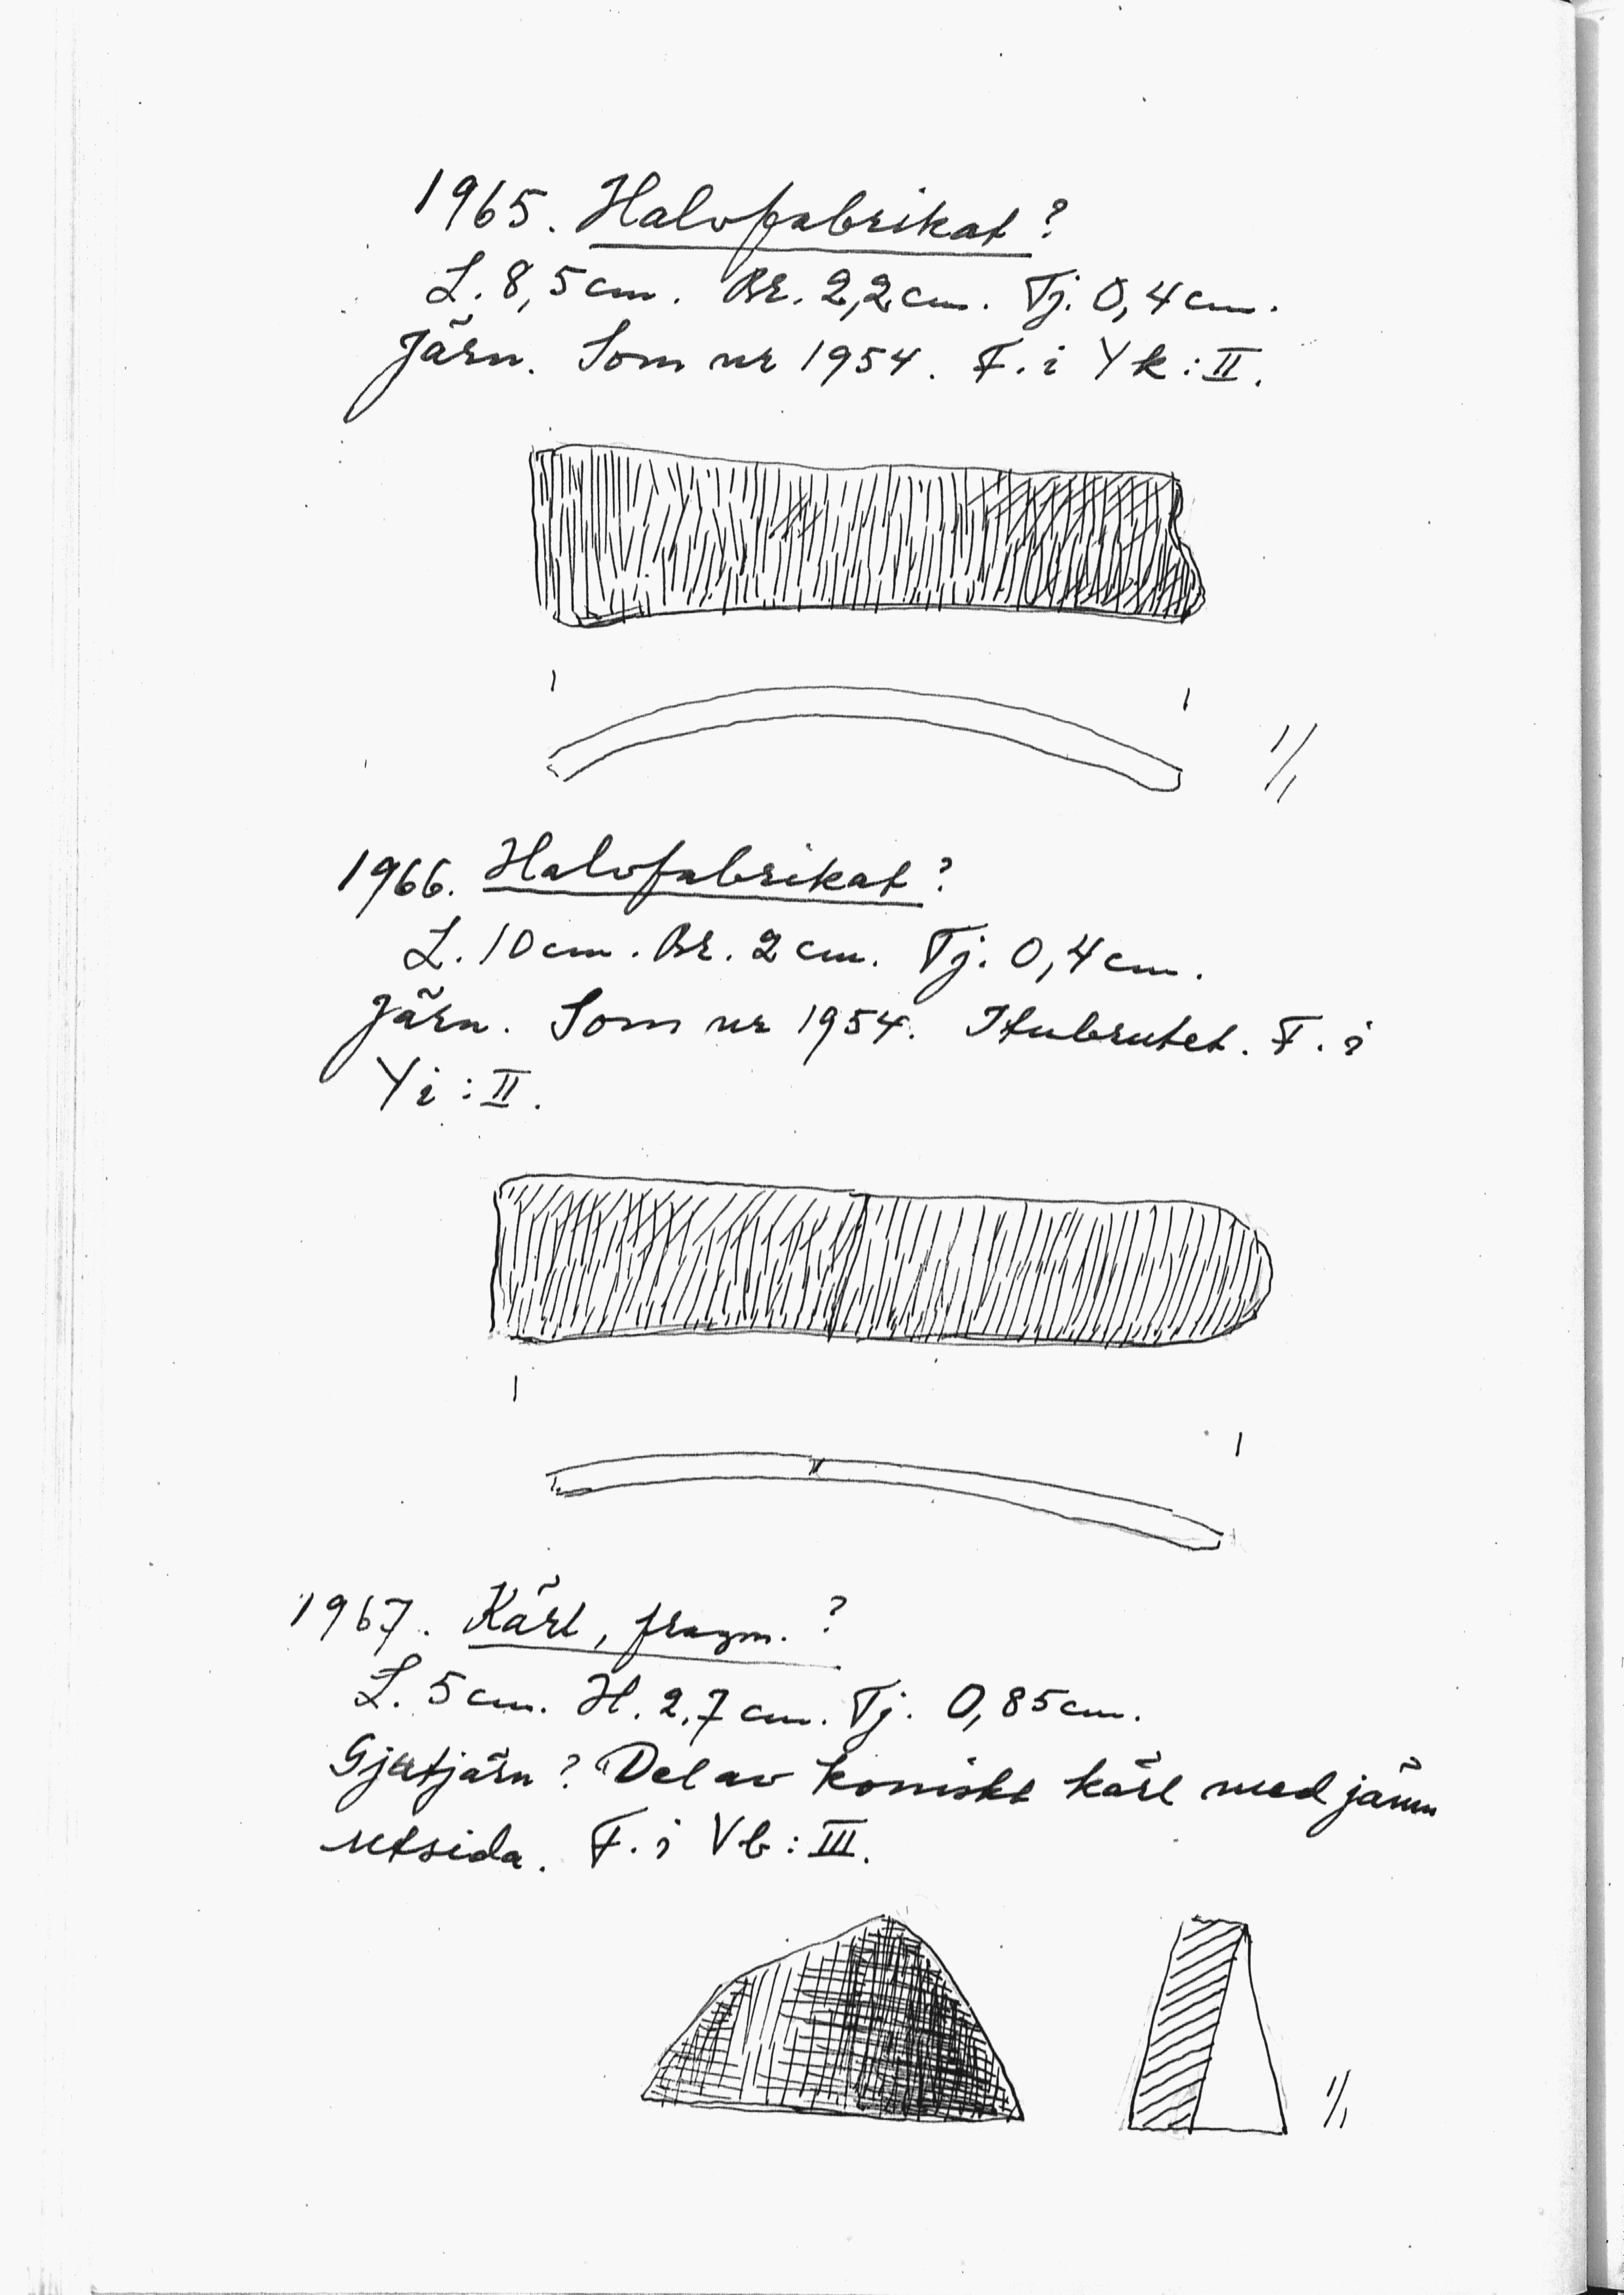 1965. Halvfabrikat?
L. 8,5 cm. Br. 2,2 cm. Tj. 0,4 cm.
Järn. Som nr 1954. F. i Yk:II.
1/1
1966. Halvfabrikat?
L. 10 cm. Br. 2 cm. Tj. 0,4 cm.
Järn. Som nr 1954. Itubrutet. F. i
Yi:II.
1967. Kärl, fragm.?
L. 5 cm. H. 2,7 cm. Tj. 0,85 cm.
Gjutjärn? Del av koniskt kärl med jämn
utsida. F. i Vb:III.
1/1